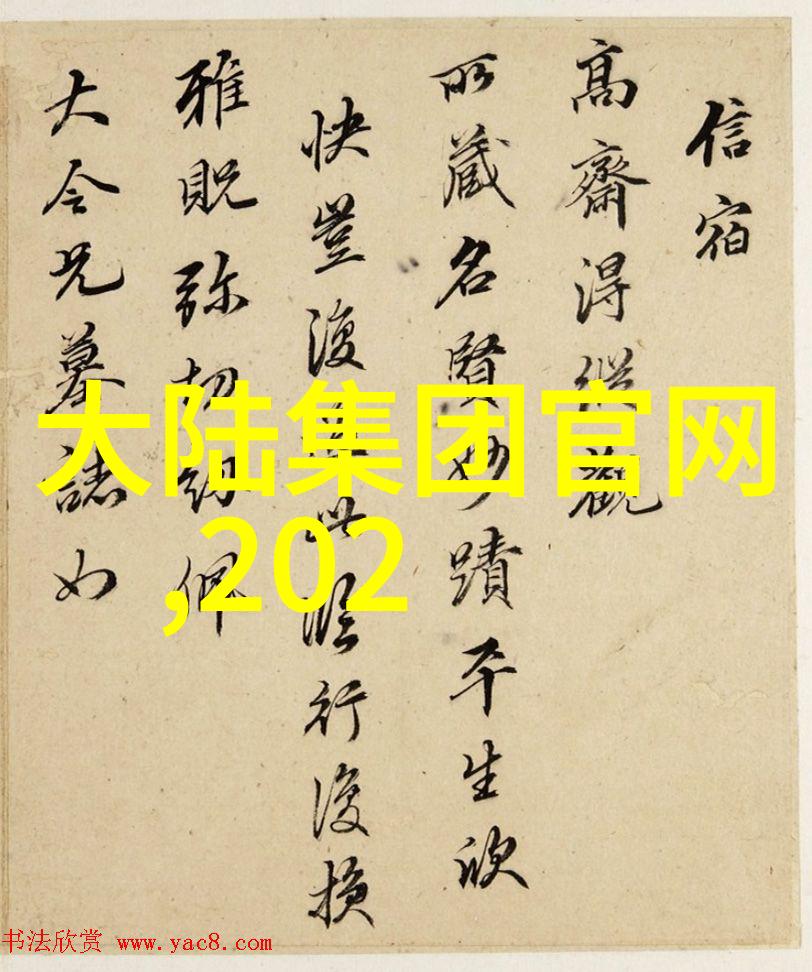 信宿
高齋得縱觀
所藏名賢妙蹟平生欣
快豈復此臨行復損
雅貺弥切紉佩
大令兄墓誌如
大陆集团官网
,202
书法欣赏 www.yac8.com